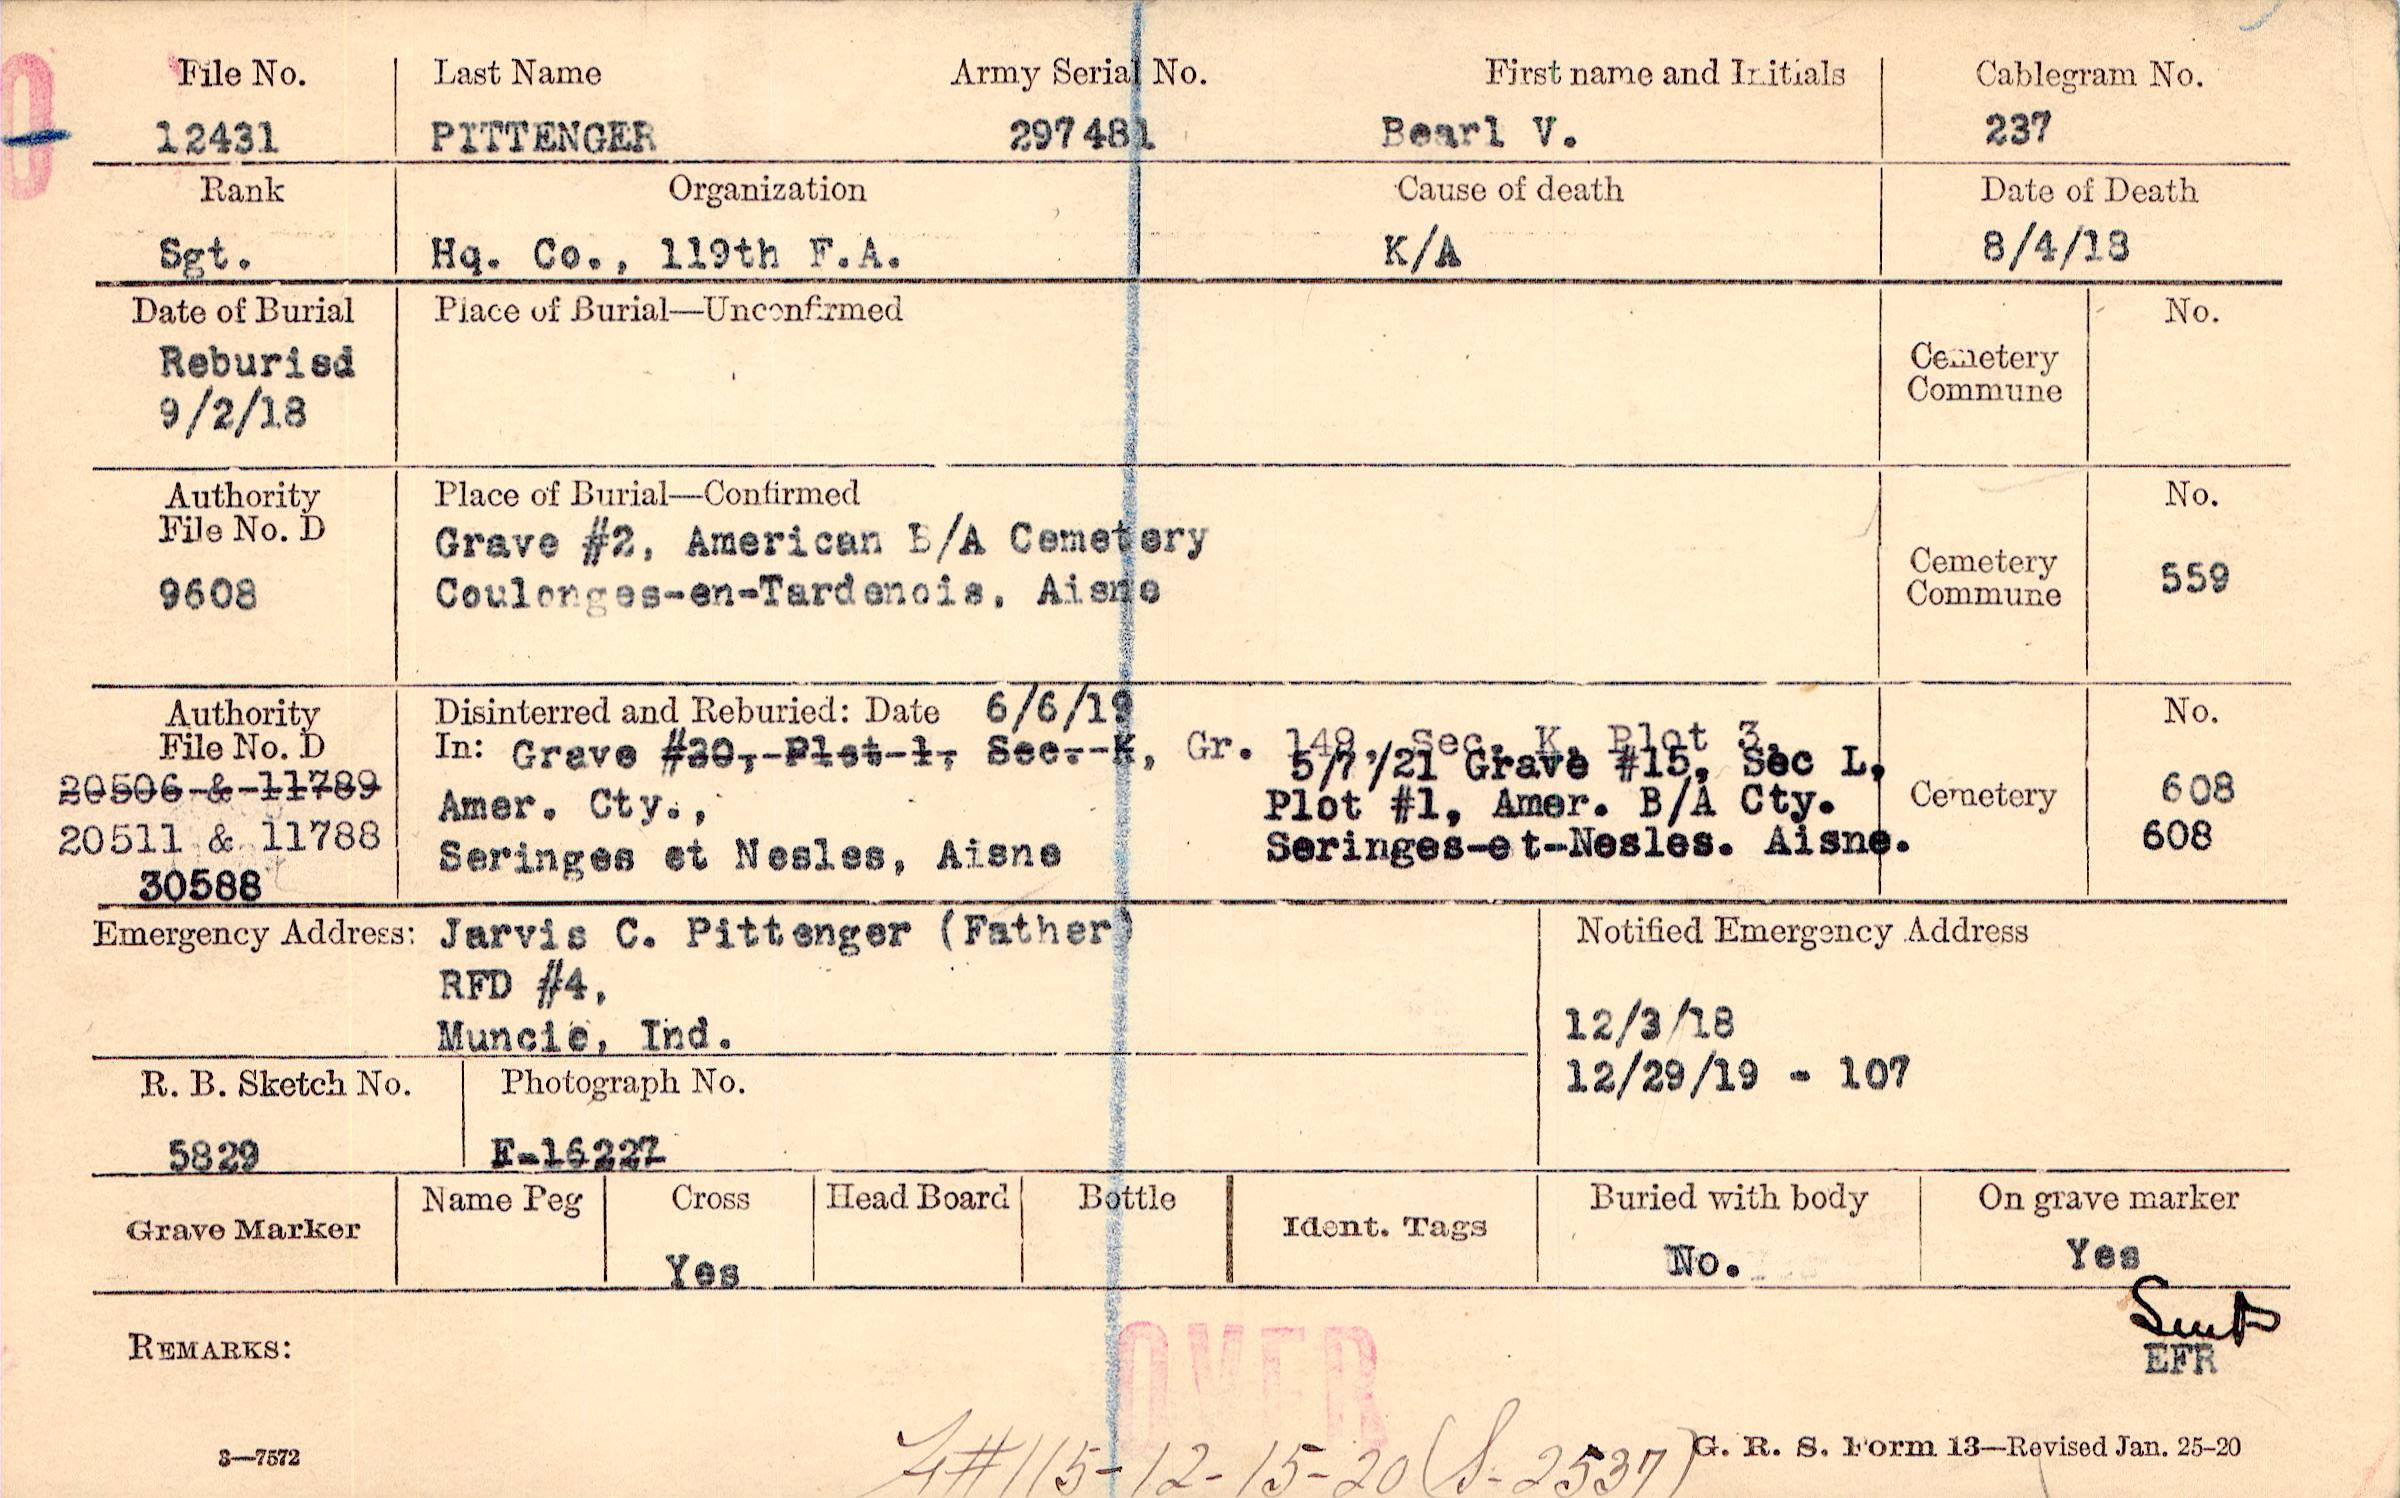 File No. Last Name Army Serial No. First name and Initials Cablegram No.
12431 PITTENGER 297481 Bearl V. 237
Rank Organization Cause of death Date of Death
Sgt. Hq. Co., 119th F.A. K/A 8/4/18
Date of Burial Place of Burial—Unconfirmed No.
Reburied
9/2/18
Cemetery
Commune
Authority Place of Burial—Confirmed No.
File No. D
Grave #2, American B/A Cemetery
9608 Coulonges-en-Tardenois, Aisne
Cemetery
Commune 559
Authority Disinterred and Reburied: Date 6/6/19 No.
File No. D In: Grave #30, Plot 1, Sec. K, Gr. 149, Sec. K, Plot 3,
20506 & 11789 5/7/21 Grave #15, Sec L,
Amer. Cty., Plot #1, Amer. B/A Cty. Cemetery 608
20511 & 11788 Seringes et Nesles, Aisne Seringes-et-Nesles. Aisne. 608
30588
Emergency Address: Jarvis C. Pittenger (Father) Notified Emergency Address
RFD #4,
Muncie, Ind.
12/3/18
12/29/19 - 107
R. B. Sketch No. Photograph No.
5829 F-16227
Grave Marker Name Peg Cross Head Board Bottle Ident. Tags Buried with body On grave marker
Yes No. Yes
EFR
REMARKS:
OVER
#115-12-15-20 (S-2537)
3—7572 G. R. S. Form 13—Revised Jan. 25-20